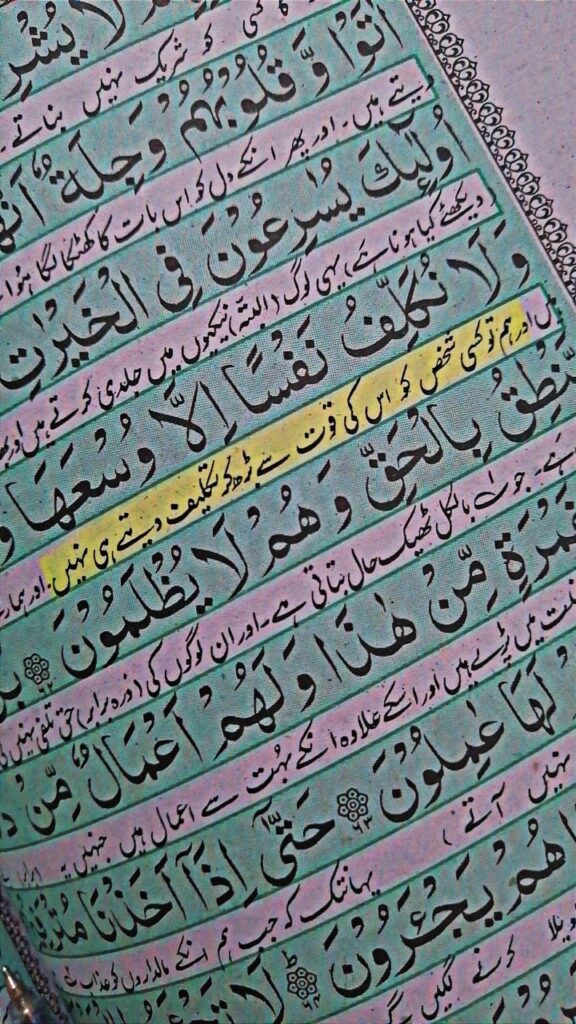 لَا يُشْرِ
کو شریک نہیں بناتے
اٰتَوْا وَّ قُلُوْبُهُمْ وَجِلَةٌ اَنَّهُ
دیتے ہیں۔ اور پھر انکے دل کو اس بات کا کھٹکا لگا ہوتا
اُولٰٓئِكَ يُسٰرِعُوْنَ فِي الْخَيْرٰتِ
دیکھئے کیا ہوتا ہے) یہی لوگ (البتہ) نیکیوں میں جلدی کرتے ہیں اور
وَلَا نُكَلِّفُ نَفْسًا اِلَّا وُسْعَهَا وَ
ہیں اور ہم تو کسی شخص کو اس کی قوت سے بڑھ کر تکلیف دیتے ہی نہیں۔ اور ہمار
نْطِقُ بِالْحَقِّ وَهُمْ لَا يُظْلَمُوْنَ ۶۲ بَ
ہے۔ جو بالکل ٹھیک حال بتاتی ہے۔ اور ان لوگوں کی (ذرہ برابر) حق تلفی نہیں کی
غَمْرَةٍ مِّنْ هٰذَا وَلَهُمْ اَعْمَالٌ مِّنْ د
میں پڑے ہیں اور اسکے علاوہ انکے بہت سے اعمال ہیں جنہیں یہ
لَهَا عٰمِلُوْنَ ۶۳ حَتّٰٓى اِذَآ اَخَذْنَا مُتْرَفِ
نہیں آتے) یہانتک کہ جب ہم انکے مالداروں کو عذاب
هُمْ يَجْـَٔرُوْنَ ۶۴ لَا تَجْـَٔ
کرنے لگیں گے